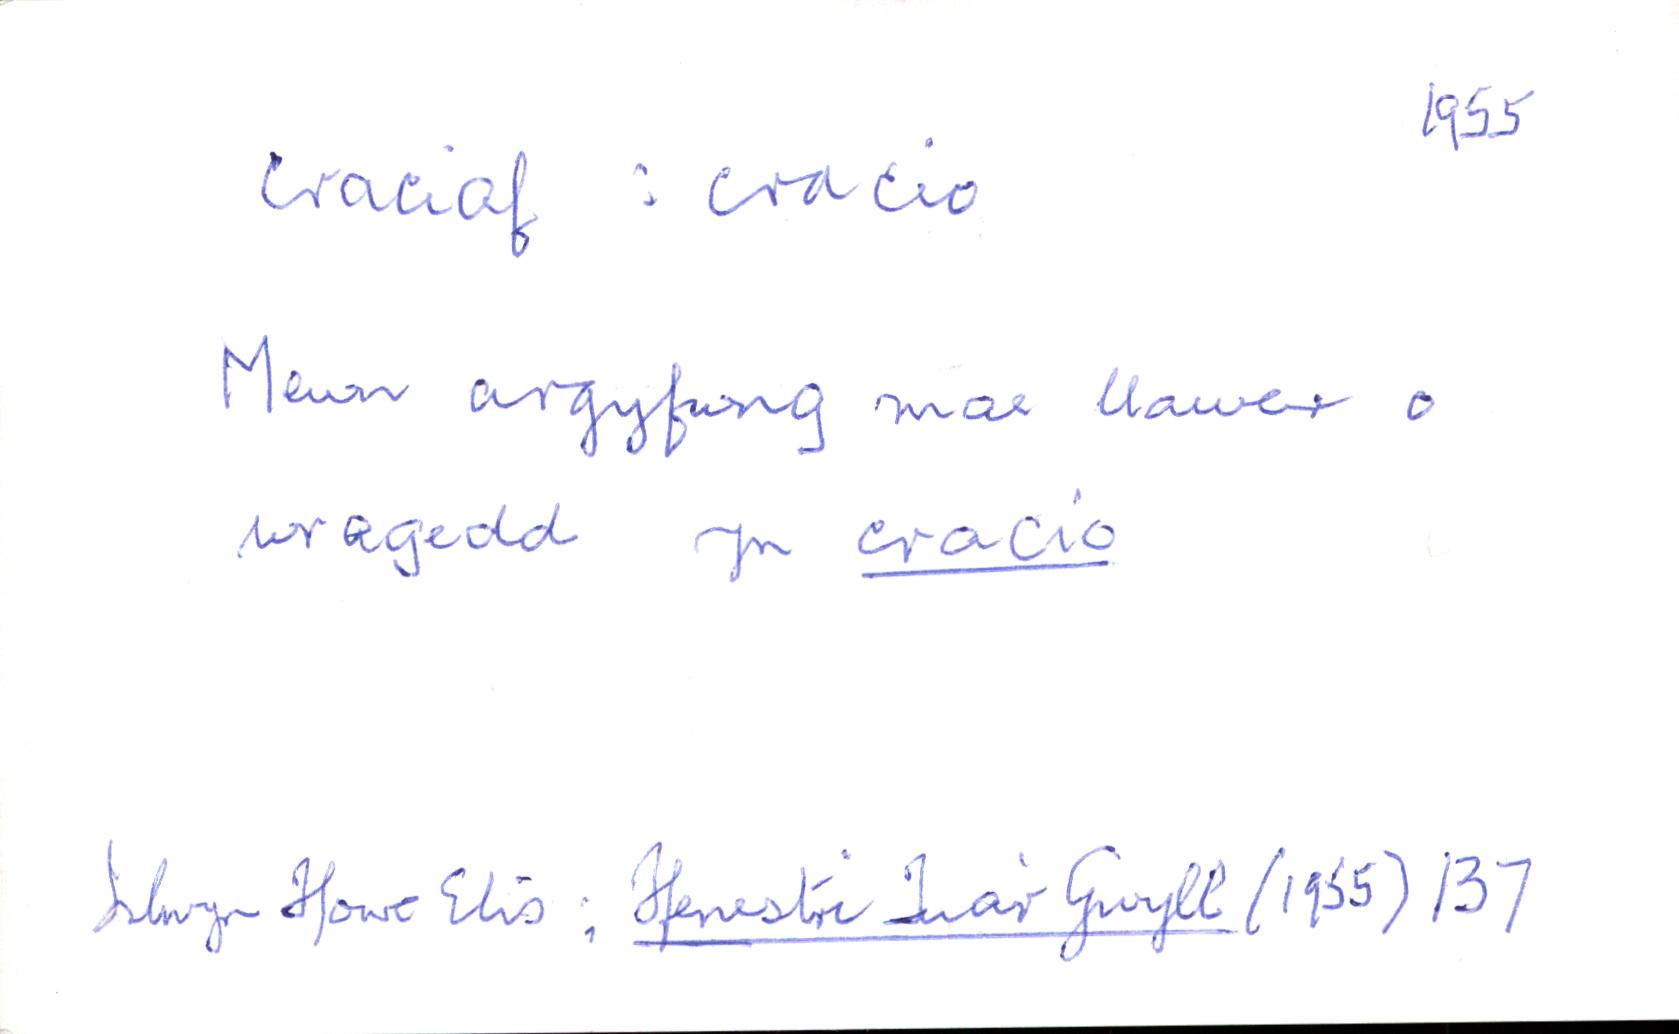 1955
craciaf : cracio
Mewn argyfwng mae llawer o
wragedd yn cracio
Islwyn Ffowc Elis : Ffenestri Tua'r Gwyll (1955) 137